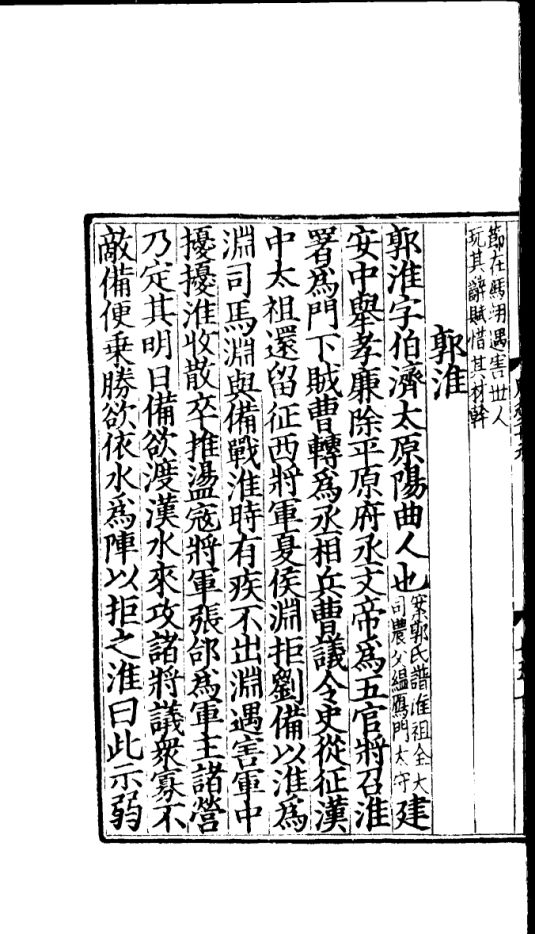 節在馮翊遇害世人
玩其辭賦惜其材幹
郭淮
郭淮字伯濟太原陽曲人也案郭氏譜淮祖全大
司農父緼鴈門太守建
安中舉孝廉除平原府丞文帝爲五官將召淮
署爲門下賊曹轉爲丞相兵曹議令史從征漢
中太祖還留征西將軍夏侯淵拒劉備以淮爲
淵司馬淵與備戰淮時有疾不出淵遇害軍中
擾擾淮收散卒推盪寇將軍張郃爲軍主諸營
乃定其明日備欲渡漢水來攻諸將議衆寡不
敵備便乗勝欲依水爲陣以拒之淮曰此示弱